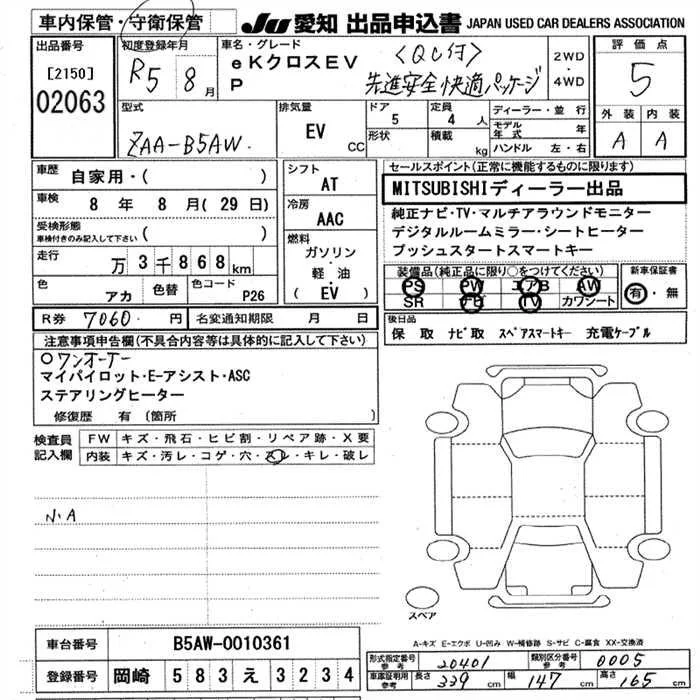 車内保管・守衛保管
JU 愛知 出品申込書 JAPAN USED CAR DEALERS ASSOCIATION
出品番号
[2150]
02063
初度登録年月
R5 8月
車名・グレード
eKクロスEV
P
〈QC付〉
先進安全快適パッケージ
2WD
・
4WD
評価点
5
外装 内装
A A
型式
ZAA-B5AW
排気量
EV
CC
ドア
5
形状
定員
4人
積載
kg
ディーラー・並行
モデル年式 年
ハンドル 左・右
車歴
自家用・( )
車検
8年 8月(29日)
受検形態
車検付きのみ記入して下さい ( )
走行
万3千868km
色
アカ
色替
色コード
P26
シフト
AT
冷房
AAC
燃料
ガソリン・
軽油・
( EV )
セールスポイント(正常に機能するものに限ります)
MITSUBISHIディーラー出品
純正ナビ・TV・マルチアラウンドモニター
デジタルルームミラー・シートヒーター
プッシュスタートスマートキー
装備品(純正品に限り○をつけてください)
PS PW エアB AW
SR ナビ TV カワシート
新車保証書
有・無
R券 7060- 円 名変通知期限 月 日
後日品
保 取 ナビ取 スペアスマートキー 充電ケーブル
注意事項申告欄(不具合内容等は具体的に記入して下さい)
○ワンオーナー
マイパイロット・E-アシスト・ASC
ステアリングヒーター
修復歴 有 (箇所 )
検査員記入欄
FW キズ・飛石・ヒビ割・リペア跡・X要
内装 キズ・汚レ・コゲ・穴・スレ・キレ・破レ
小A
スペア
A-キズ E-エクボ U-凹み W-補修跡 S-サビ C-腐食 XX-交換済
車台番号 B5AW-0010361
登録番号 岡崎 583 え 3234
形式指定番号 参考 20401 類別区分番号 参考 0005
車庫証明用 参考 長さ 339 cm 幅 147 cm 高さ 165 cm